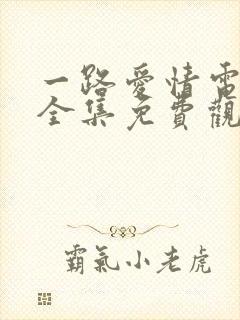 一路愛情電
全集免費觀
霸氣小老虎